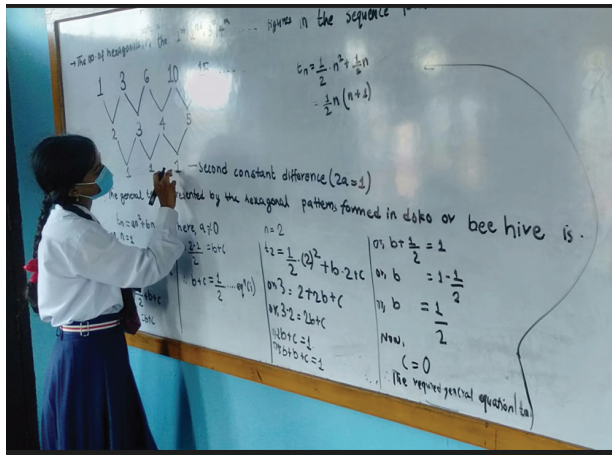 → The no. of hexagons in the 1st figures in the sequence
1 3 6 10 15
2 3 4 5
1 1 1 - second constant difference (2a=1)
tn = 1/2 . n² + 1/2 n
= 1/2 n (n+1)
The general represented by the hexagonal patterns formed in doko or bee hive is.
tn = an² + bn here, a≠0
n = 1
2-1/2 = b+c
b+c = 1/2 ..... eqn (i)
n = 2
t2 = 1/2 . (2)² + b.2+c
or, 3 = 2+2b+c
or, 3-2 = 2b+c
2b+c = 1
b+b+c = 1
or, b + 1/2 = 1
or, b = 1 - 1/2
b = 1/2
Now,
c = 0
The required general equation (tn)